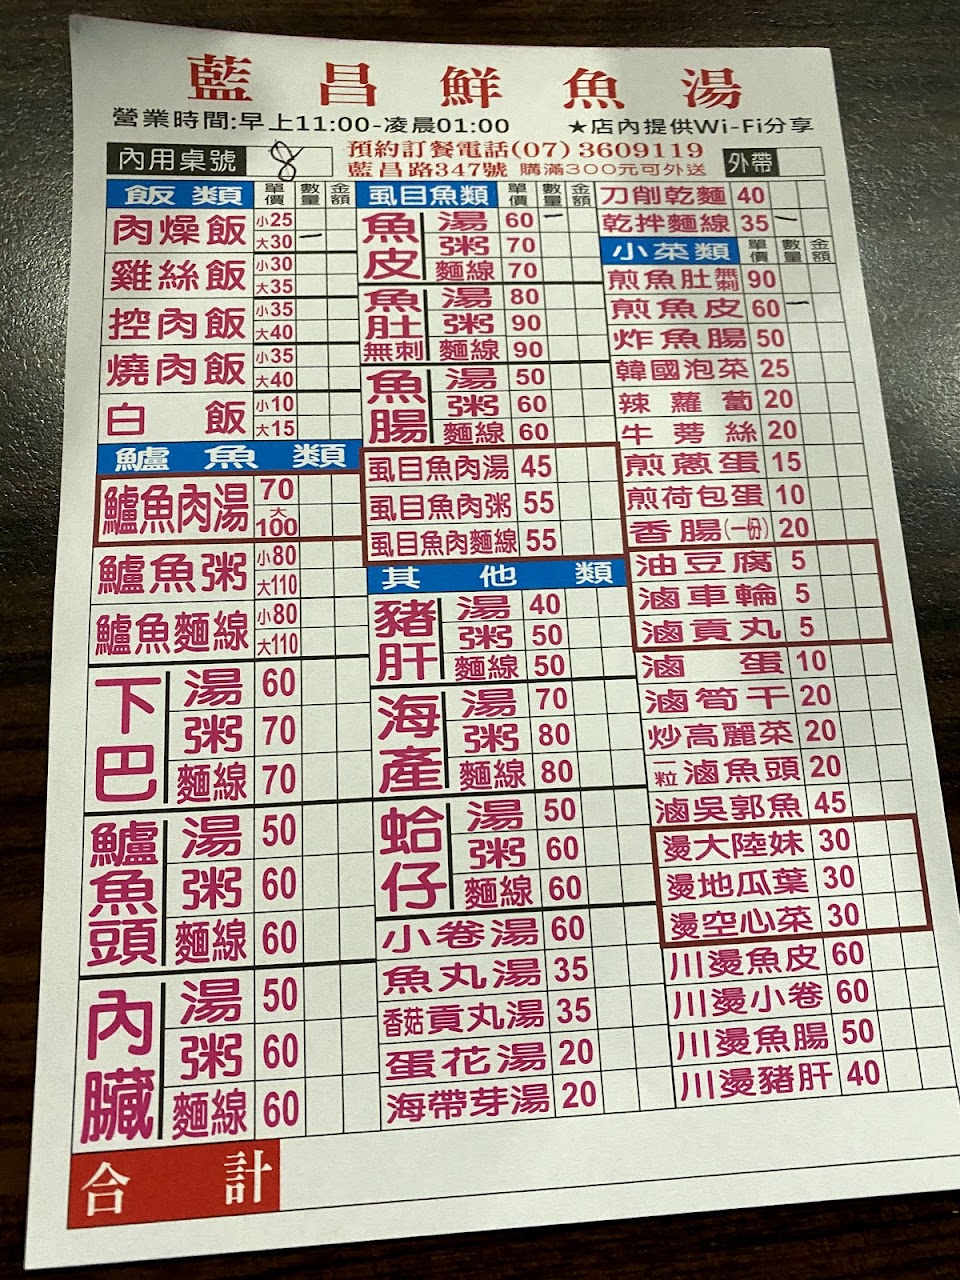 藍昌鮮魚湯
營業時間:早上11:00-凌晨01:00 ★店內提供Wi-Fi分享
內用桌號 8 預約訂餐電話(07) 3609119 外帶
藍昌路347號 購滿300元可外送
飯類 單價 數量 金額
肉燥飯 小25 大30 一
雞絲飯 小30 大35
控肉飯 小35 大40
燒肉飯 小35 大40
白飯 小10 大15
鱸魚類
鱸魚肉湯 70 大100
鱸魚粥 小80 大110
鱸魚麵線 小80 大110
下巴 湯 60
粥 70
麵線 70
鱸魚頭 湯 50
粥 60
麵線 60
內臟 湯 50
粥 60
麵線 60
虱目魚類 單價 數量 金額
魚皮 湯 60 一
粥 70
麵線 70
魚肚無刺 湯 80
粥 90
麵線 90
魚腸 湯 50
粥 60
麵線 60
虱目魚肉湯 45
虱目魚肉粥 55
虱目魚肉麵線 55
其他類
豬肝 湯 40
粥 50
麵線 50
海產 湯 70
粥 80
麵線 80
蛤仔 湯 50
粥 60
麵線 60
小卷湯 60
魚丸湯 35
香菇貢丸湯 35
蛋花湯 20
海帶芽湯 20
刀削乾麵 40
乾拌麵線 35 一
小菜類 單價 數量 金額
煎魚肚無刺 90
煎魚皮 60 一
炸魚腸 50
韓國泡菜 25
辣蘿蔔 20
牛蒡絲 20
煎蔥蛋 15
煎荷包蛋 10
香腸(一份) 20
油豆腐 5
滷車輪 5
滷貢丸 5
滷蛋 10
滷筍干 20
炒高麗菜 20
一粒滷魚頭 20
滷吳郭魚 45
燙大陸妹 30
燙地瓜葉 30
燙空心菜 30
川燙魚皮 60
川燙小卷 60
川燙魚腸 50
川燙豬肝 40
合計